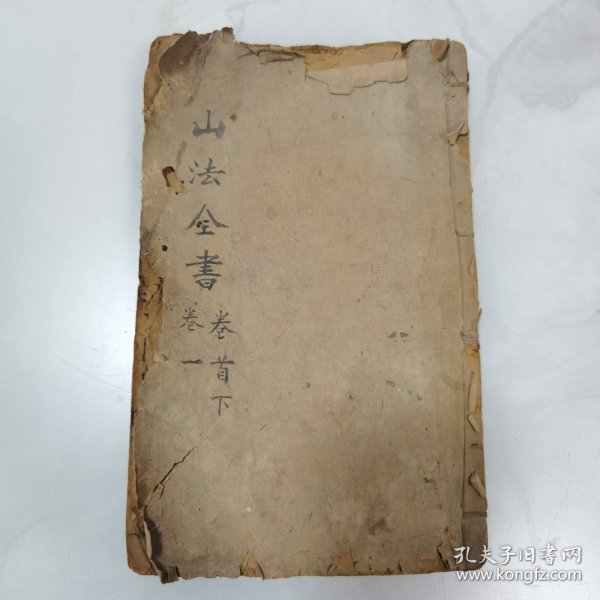 山法全書
卷首下
卷一
孔夫子旧書网
www.kongfz.com